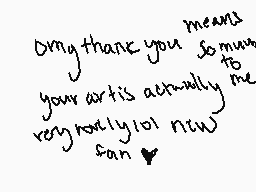 omg thank you means so much to me
your art is actually
very rlly lol new
fan ♥